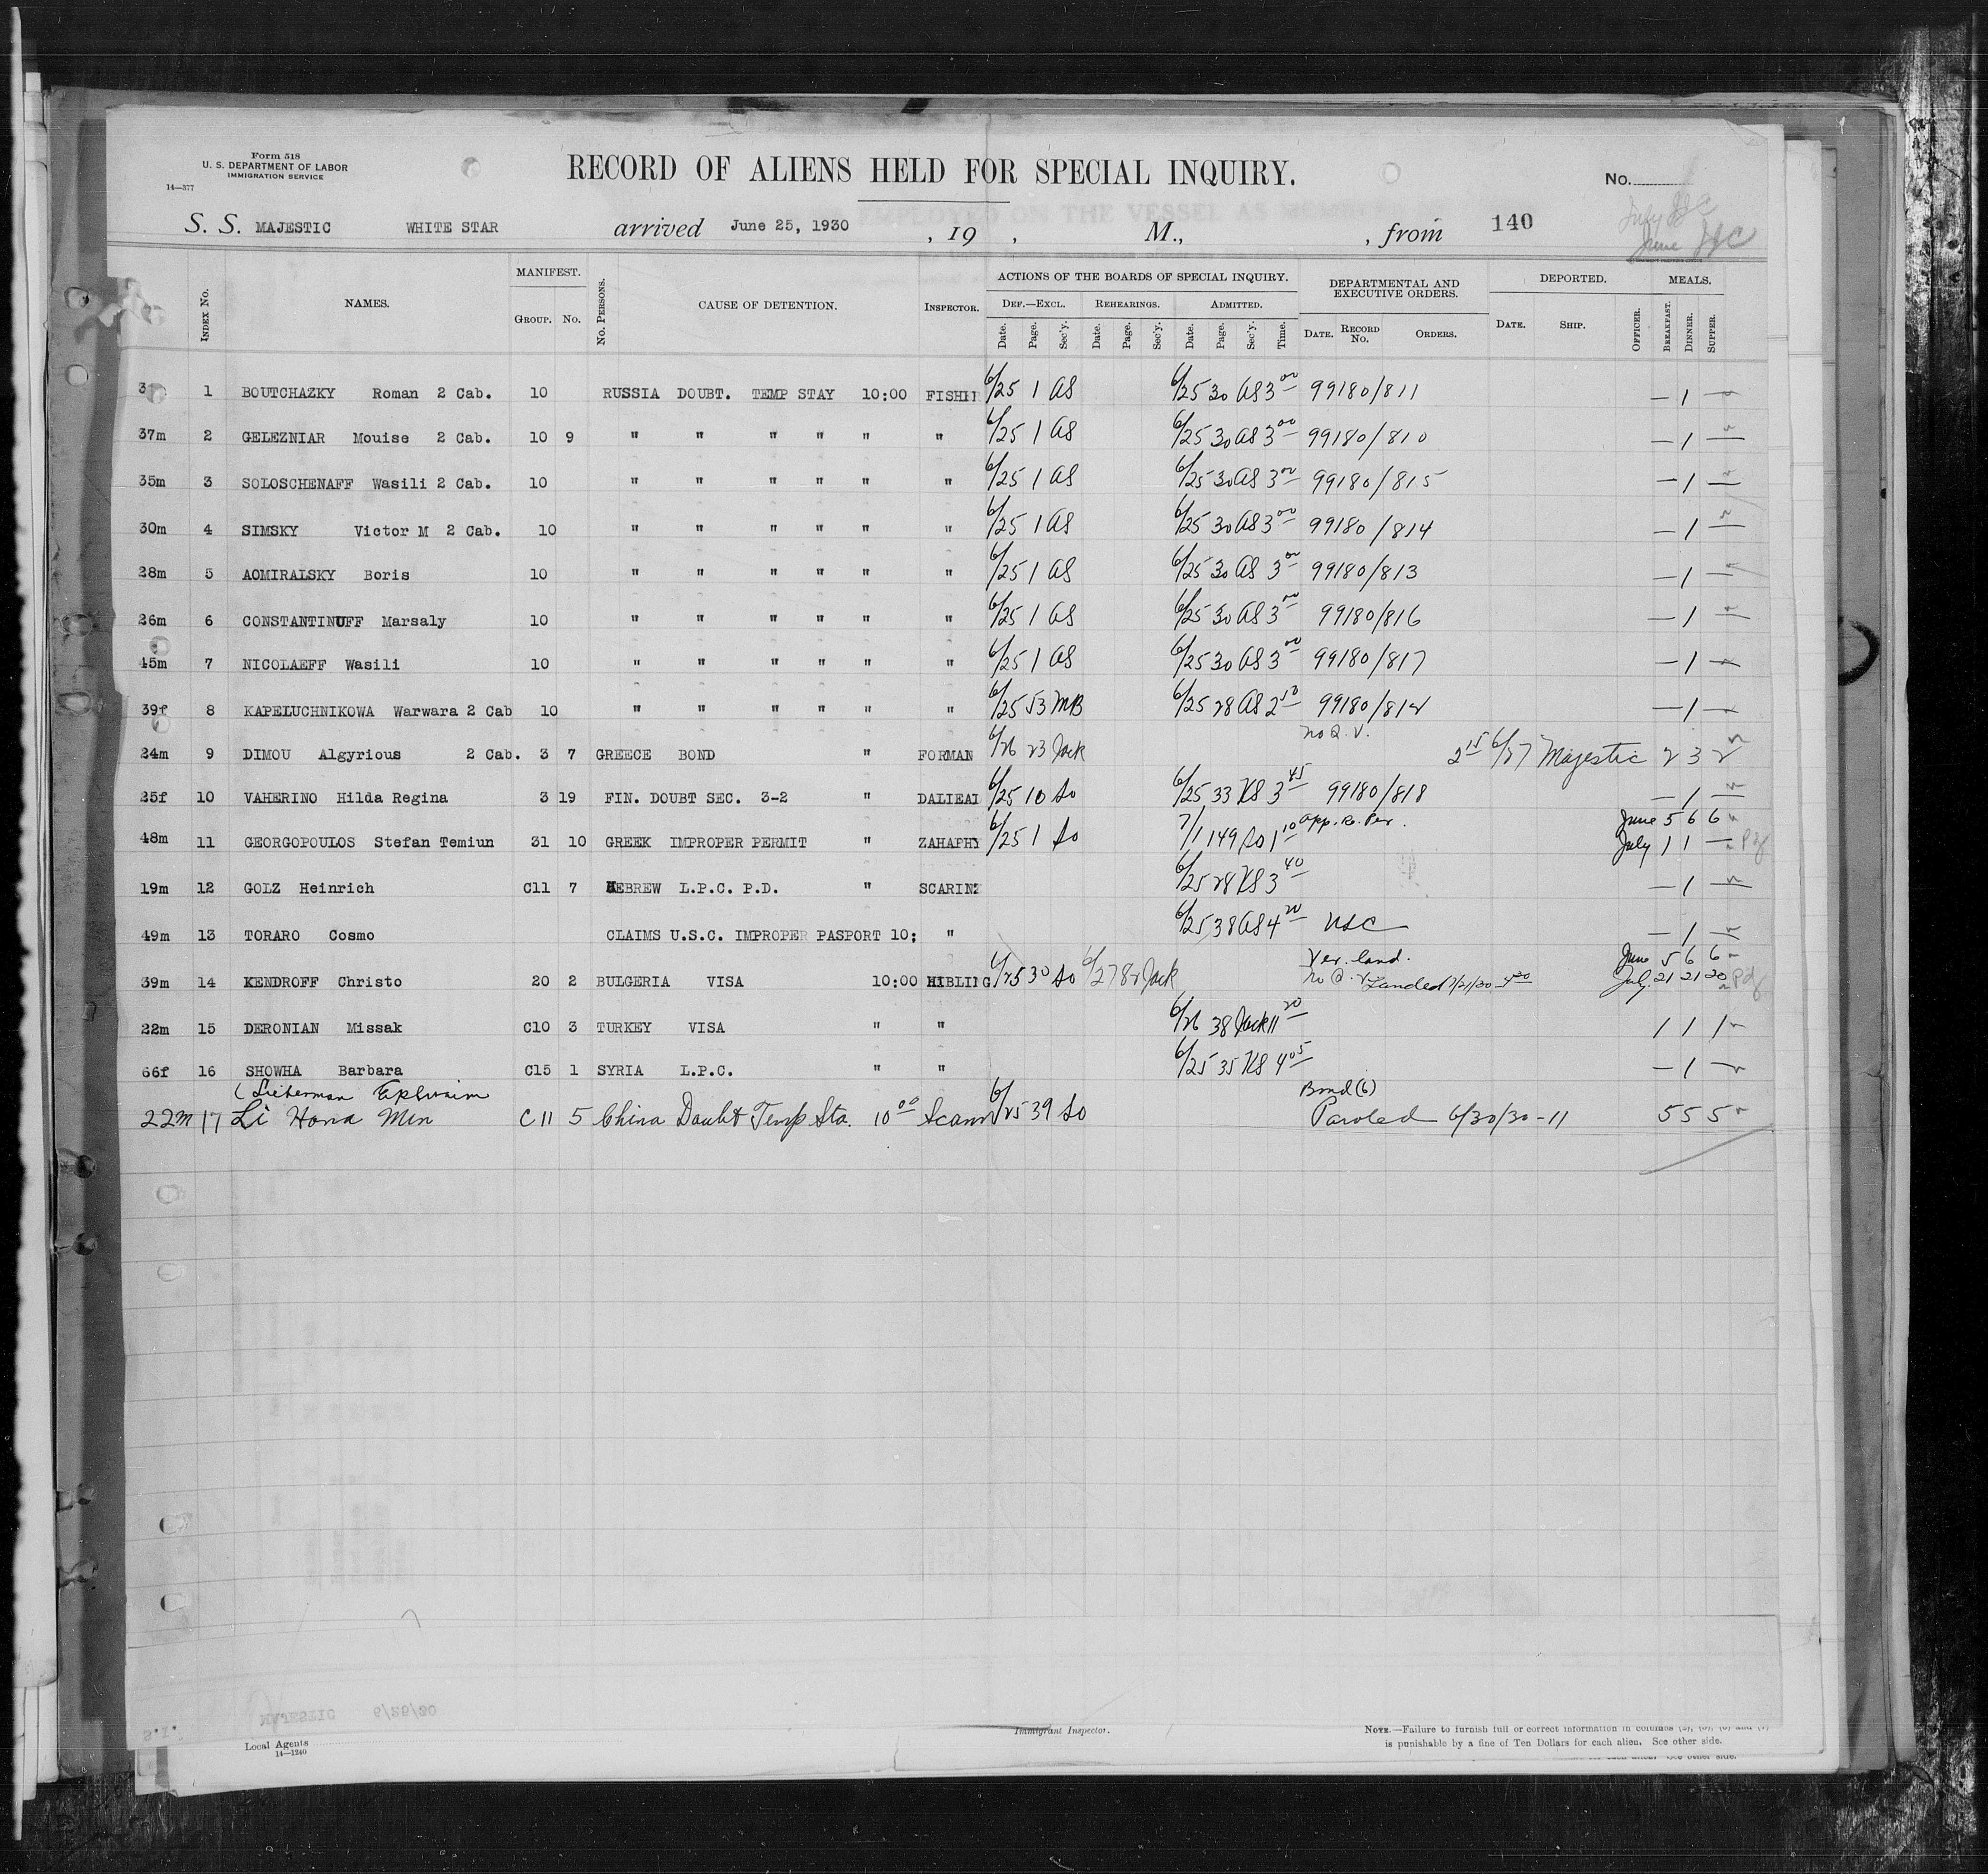 Form 518
U. S. DEPARTMENT OF LABOR
IMMIGRATION SERVICE
14—377
RECORD OF ALIENS HELD FOR SPECIAL INQUIRY.
No.
S. S. MAJESTIC WHITE STAR arrived June 25, 1930 , 19 , M., , from 140
July JJC
June JJC
INDEX No. NAMES. MANIFEST. GROUP. No. No. PERSONS. CAUSE OF DETENTION. INSPECTOR. ACTIONS OF THE BOARDS OF SPECIAL INQUIRY. DEF.—EXCL. REHEARINGS. ADMITTED. DEPARTMENTAL AND EXECUTIVE ORDERS. DEPORTED. MEALS.
Date. Page. Sec'y. Date. Page. Sec'y. Date. Page. Sec'y. Time. DATE. RECORD No. ORDERS. DATE. SHIP. OFFICER. BREAKFAST. DINNER. SUPPER.
1 BOUTCHAZKY Roman 2 Cab. 10 RUSSIA DOUBT. TEMP STAY 10:00 FISHI 6/25 1 AS 6/25 30 AS 3 00 99180/811 — 1 —
37m 2 GELEZNIAR Mouise 2 Cab. 10 9 " " " " " " 6/25 1 AS 6/25 30 AS 3 00 99180/810 — 1 —
35m 3 SOLOSCHENAFF Wasili 2 Cab. 10 " " " " " " 6/25 1 AS 6/25 30 AS 3 00 99180/815 — 1 —
30m 4 SIMSKY Victor M 2 Cab. 10 " " " " " " 6/25 1 AS 6/25 30 AS 3 00 99180/814 — 1 —
28m 5 AOMIRALSKY Boris 10 " " " " " " 6/25 1 AS 6/25 30 AS 3 00 99180/813 — 1 —
26m 6 CONSTANTINUFF Marsaly 10 " " " " " " 6/25 1 AS 6/25 30 AS 3 00 99180/816 — 1 —
45m 7 NICOLAEFF Wasili 10 " " " " " " 6/25 1 AS 6/25 30 AS 3 00 99180/817 — 1 —
39f 8 KAPELUCHNIKOWA Warwara 2 Cab 10 " " " " " " 6/25 53 MB 6/25 28 AS 2 10 99180/812 — 1 —
no Q. V.
24m 9 DIMOU Algyrious 2 Cab. 3 7 GREECE BOND " FORMAN 6/26 23 Jack 2 15 6/27 Majestic 2 3 2
25f 10 VAHERINO Hilda Regina 3 19 FIN. DOUBT SEC. 3-2 " DALIEAI 6/25 10 So 6/25 33 KS 3 45 99180/818 — 1 —
App. Re. Per. June 5 6 6
48m 11 GEORGOPOULOS Stefan Temiun 31 10 GREEK IMPROPER PERMIT " ZAHAPHY 6/25 1 So 7/1 149 So 1 10 July 1 1 —
19m 12 GOLZ Heinrich C11 7 HEBREW L.P.C. P.D. " SCARINZ 6/25 28 KS 3 40 — 1 —
49m 13 TORARO Cosmo CLAIMS U.S.C. IMPROPER PASPORT 10; " 6/25 38 AS 4 20 USC — 1 —
Ver. land. June 5 6 6
39m 14 KENDROFF Christo 20 2 BULGERIA VISA 10:00 HIBLING 6/25 30 So 6/27 82 Jack no Q. V. Landed 7/21/30 4 20 July 21 21 20
22m 15 DERONIAN Missak C10 3 TURKEY VISA " " 6/26 38 Jack 11 20 1 1 1
66f 16 SHOWHA Barbara C15 1 SYRIA L.P.C. " " 6/25 35 KS 4 05 — 1 —
(Lieberman Ephraim Bond (6)
22m 17 Li Hona Men C 11 5 China Doubt Temp Sta. 10 00 6/25 39 So Paroled 6/30/30-11 5 5 5
S.I. MAJESTIC 6/25/30
Local Agents
14—1240
Immigrant Inspector.
NOTE.—Failure to furnish full or correct information in columns
is punishable by a fine of Ten Dollars for each alien. See other side.
See other side.